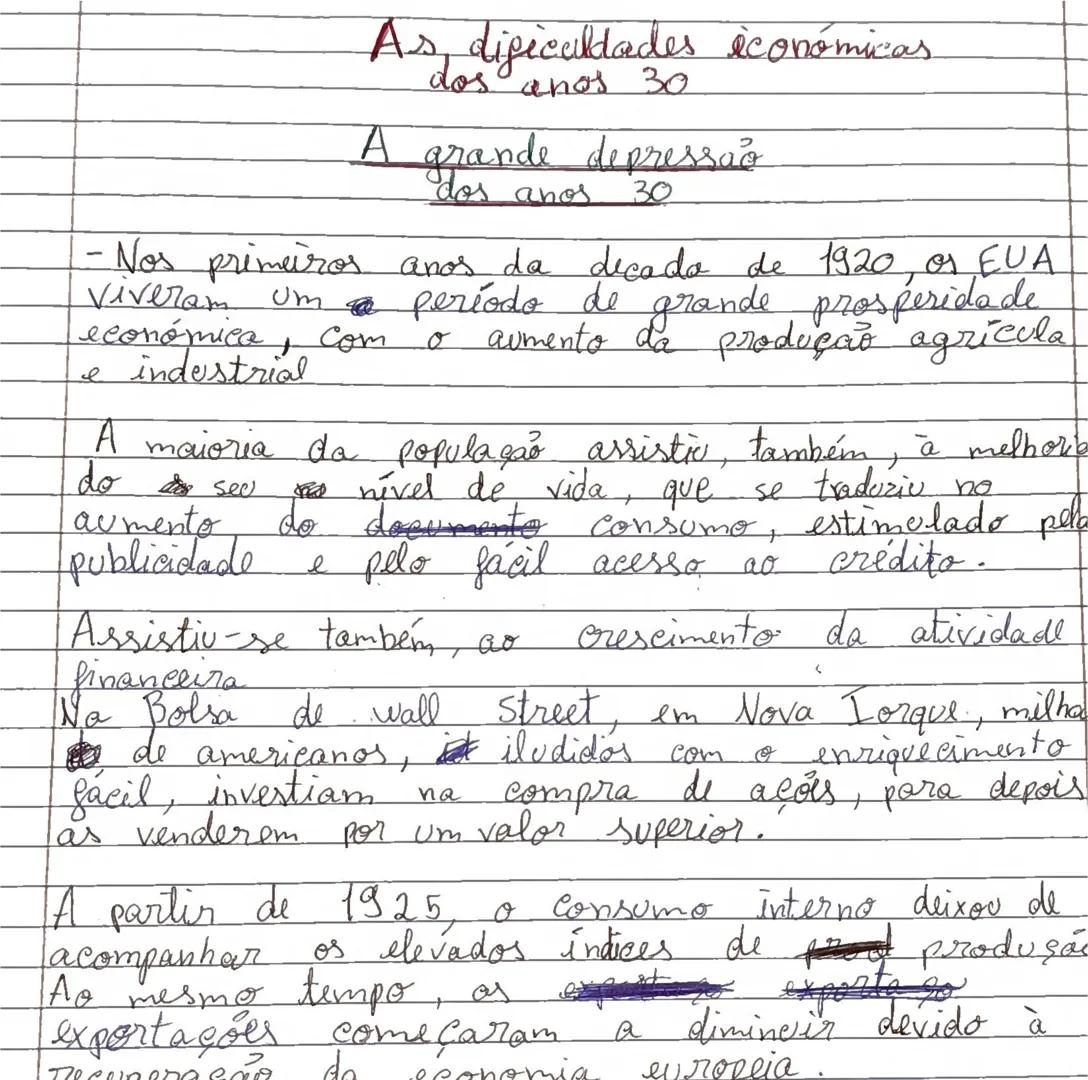 As dificuldades económicas
dos anos 30
A grande depressão
dos anos 30
- Nos primeiros anos da decada de 1920, os EUA
viveram um período de grande prosperidade
económica, com o aumento da produção agrícula
e industrial
A maioria da população assistiu, também, à melhoria
do seu nível de vida, que se traduziu no
aumento do documento consumo, estimulado pela
publicidade e pelo fácil acesso ao crédito.
Assistiu-se também, ao crescimento da atividade
financeira
Na Bolsa de wall Street, em Nova Iorque, milha
de americanos, iludidos com o enriquecimento
fácil, investiam na compra de ações, para depois
as venderem por um valor superior.
A partir de 1925, o consumo interno deixou de
acompanhar os elevados índices de prod produçã
Ao mesmo tempo, as
exportações começaram a diminuir devido à
recuperação da economia europeia.